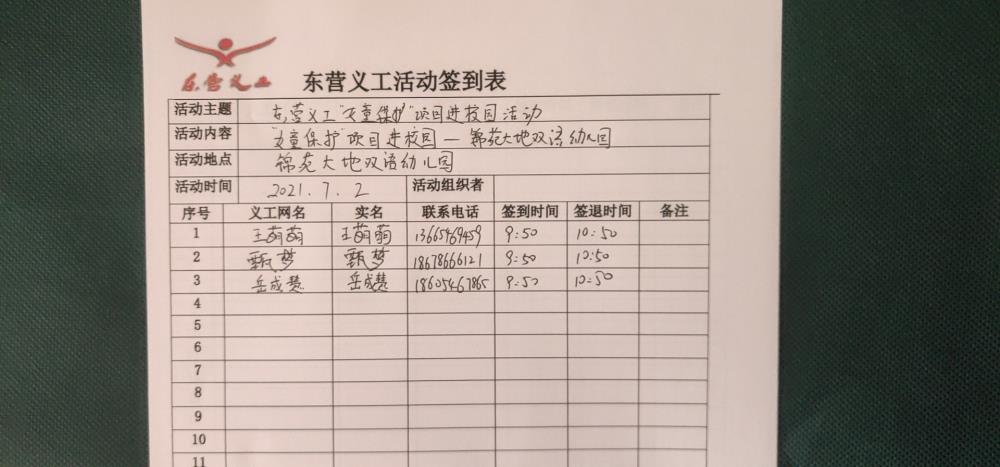 东营义工
东营义工活动签到表
活动主题 东营义工"女童保护"项目进校园活动
活动内容 "女童保护"项目进校园—锦苑大地双语幼儿园
活动地点 锦苑大地双语幼儿园
活动时间 2021.7.2 活动组织者
序号 义工网名 实名 联系电话 签到时间 签退时间 备注
1 王萌萌 王萌萌 13665469459 9:50 10:50
2 甄梦 甄梦 18678666121 9:50 10:50
3 岳成慧 岳成慧 18605467865 9:50 10:50
4
5
6
7
8
9
10
11